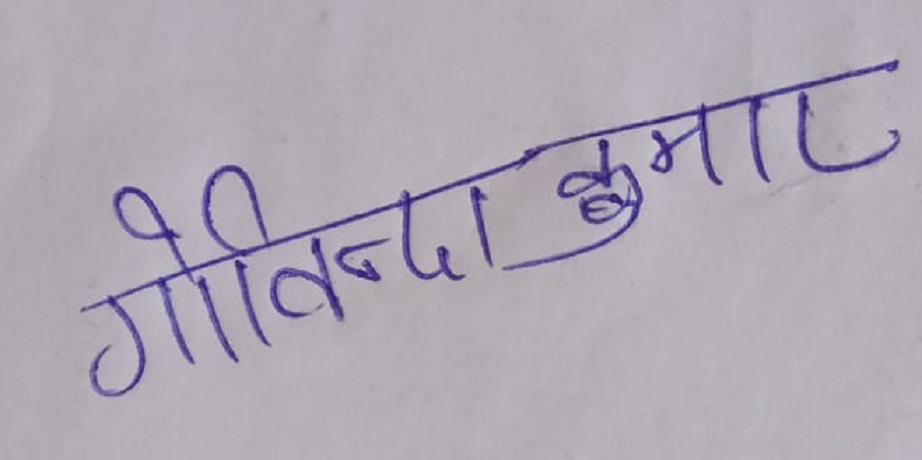 गोविन्दा कुमार